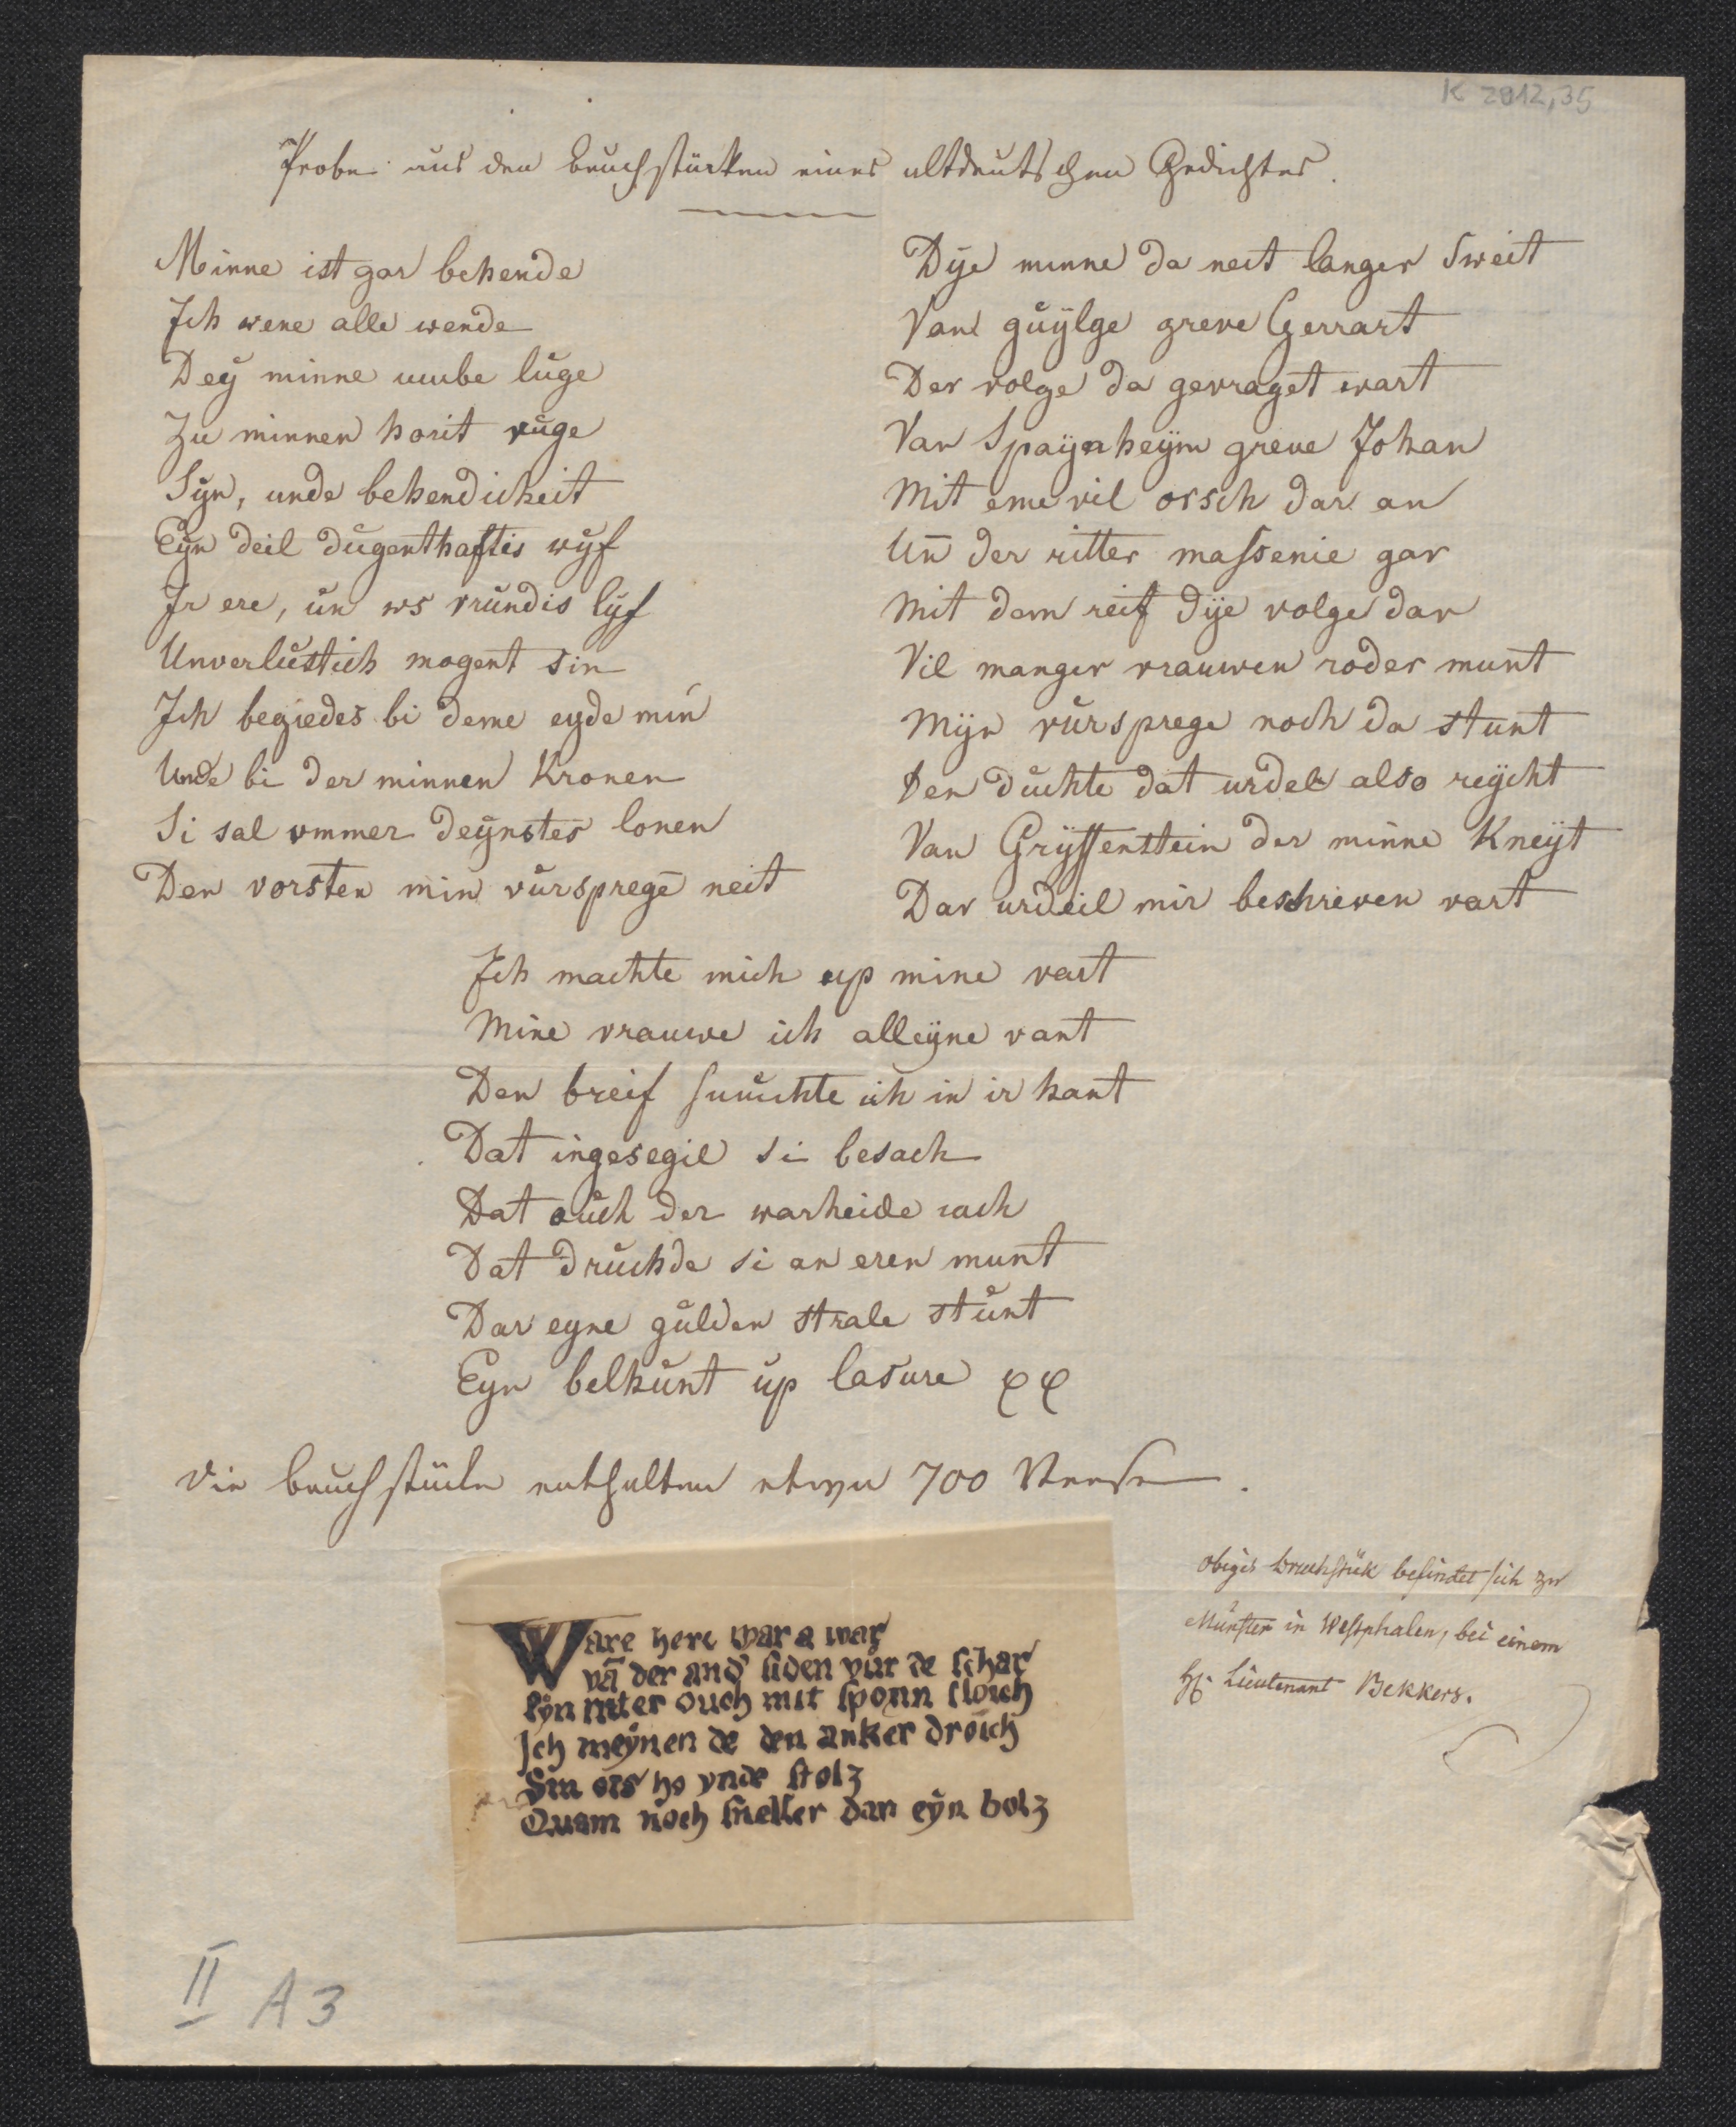 K 2012,35
Probe aus den Bruchstücken eines altdeutschen Gedichtes.
Minne ist gar behende
Ich wene alle wende
Dey minne umbe luge
Zu minnen horit vuge
Syn, unde behendicheit
Eyn deil dugenthaftis wyf
Ir ere, un ws vrundis lyf
Unverlustich mogent sin
Ich begiedes bi deme eyde min
Unde bi der minnen Kronen
Si sal ummer deynstes lonen
Den vorsten min vursprege neit
Dÿe minne da neit langer sweit
Van guÿlge greve Gerrart
Der volge da gevraget wart
Van Spaÿnheÿm greve Johan
Mit eme vil orsch dar an
Un̄ der ritter massenie gar
Mit dem reif dÿe volge dar
Vil manger vrauwen roder munt
Mÿn vursprege noch da stunt
Den duchte dat urdel also reÿcht
Van Grÿffenstein der minne Kneÿt
Dar urdeil mir beschreven vart
Ich machte mich up mine vart
Mine vrauwe ich alleÿne vant
Den breif suuchte ich in ir hant
Dat ingesegil si besach
Dat ouch der warheide iach
Dat druchde si an eren munt
Dar eyne gulden strale stunt
Eyn belkunt up lasure
Die Bruchstücke enthalten etwa 700 Verse.
Ware here war a war
vā der and' siden vur de schar
Eyn ritter ouch mit sporin sloich
Ich meynen de den anker droich
Sin ors ho vnde stolz
Quam noch sneller dan eyn bolz
obiges Bruchstük befindet sich zu
Münster in Westphalen, bei einem
H. Lieutenant Bekkers.
II A 3